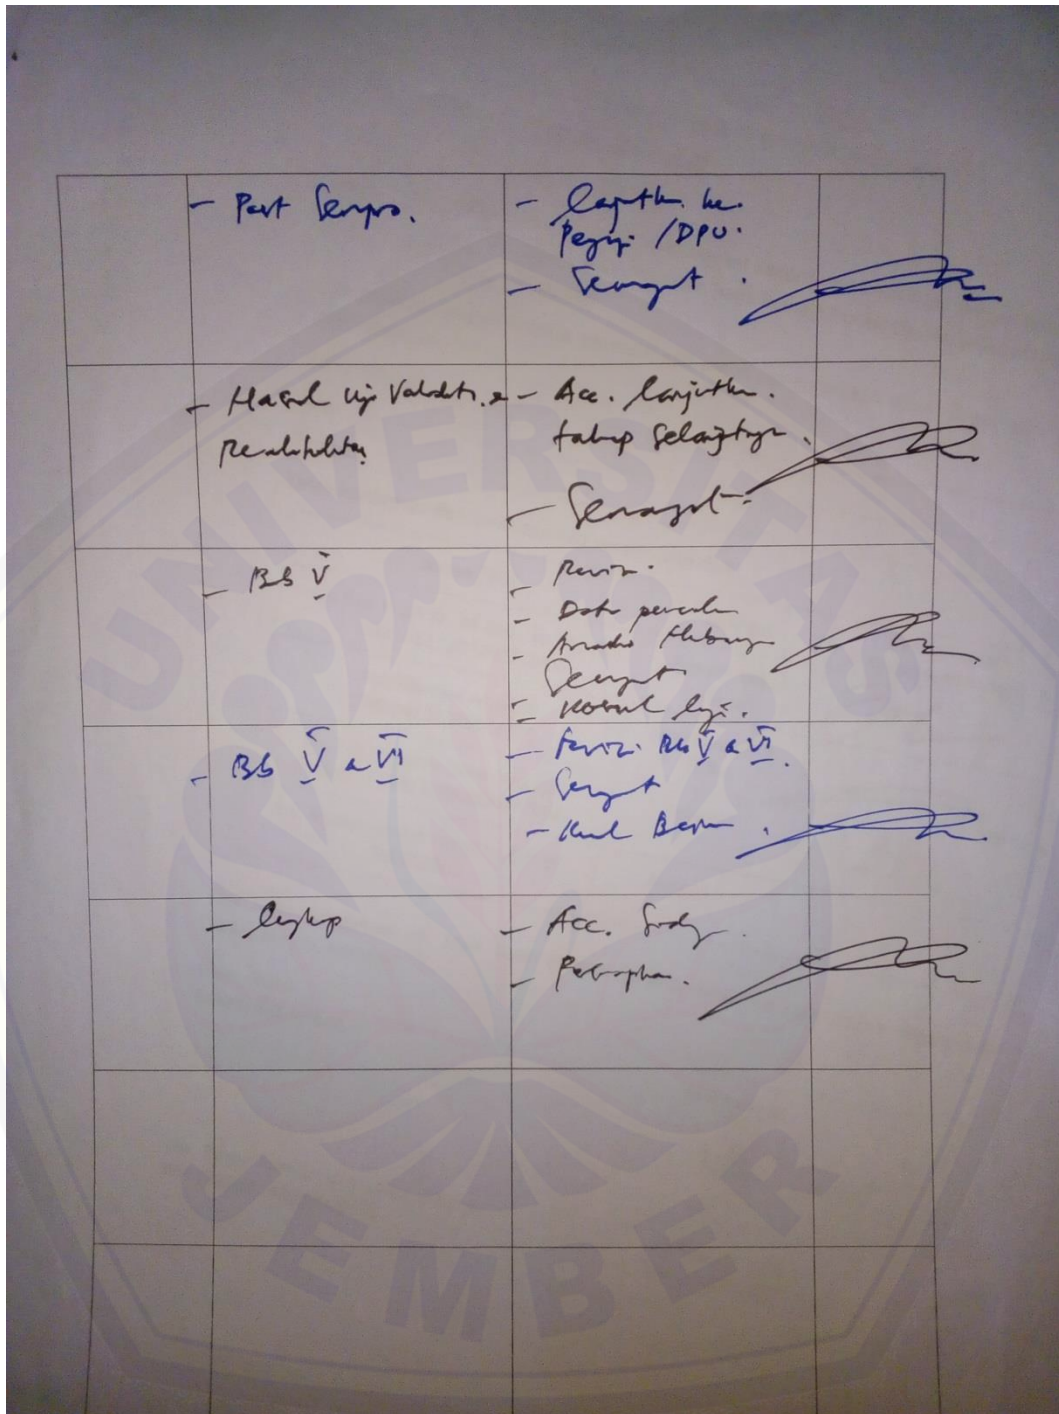 - Post Sempro.
- lanjutkan ke
Penguji /DPU.
- Semangat.
- Hasil Uji Validitas &
Reabilitas
- Acc. lanjutkan.
tahap Selanjutnya.
- Semangat.
- Bab V
- Revisi.
- Data
- Hubungan
Semangat
- Konsul lagi.
- Bab V & VI
- Revisi Bab V & VI.
- Semangat
- lengkap
- Acc. Sidang.
-
UNIVERSITAS
JEMBER